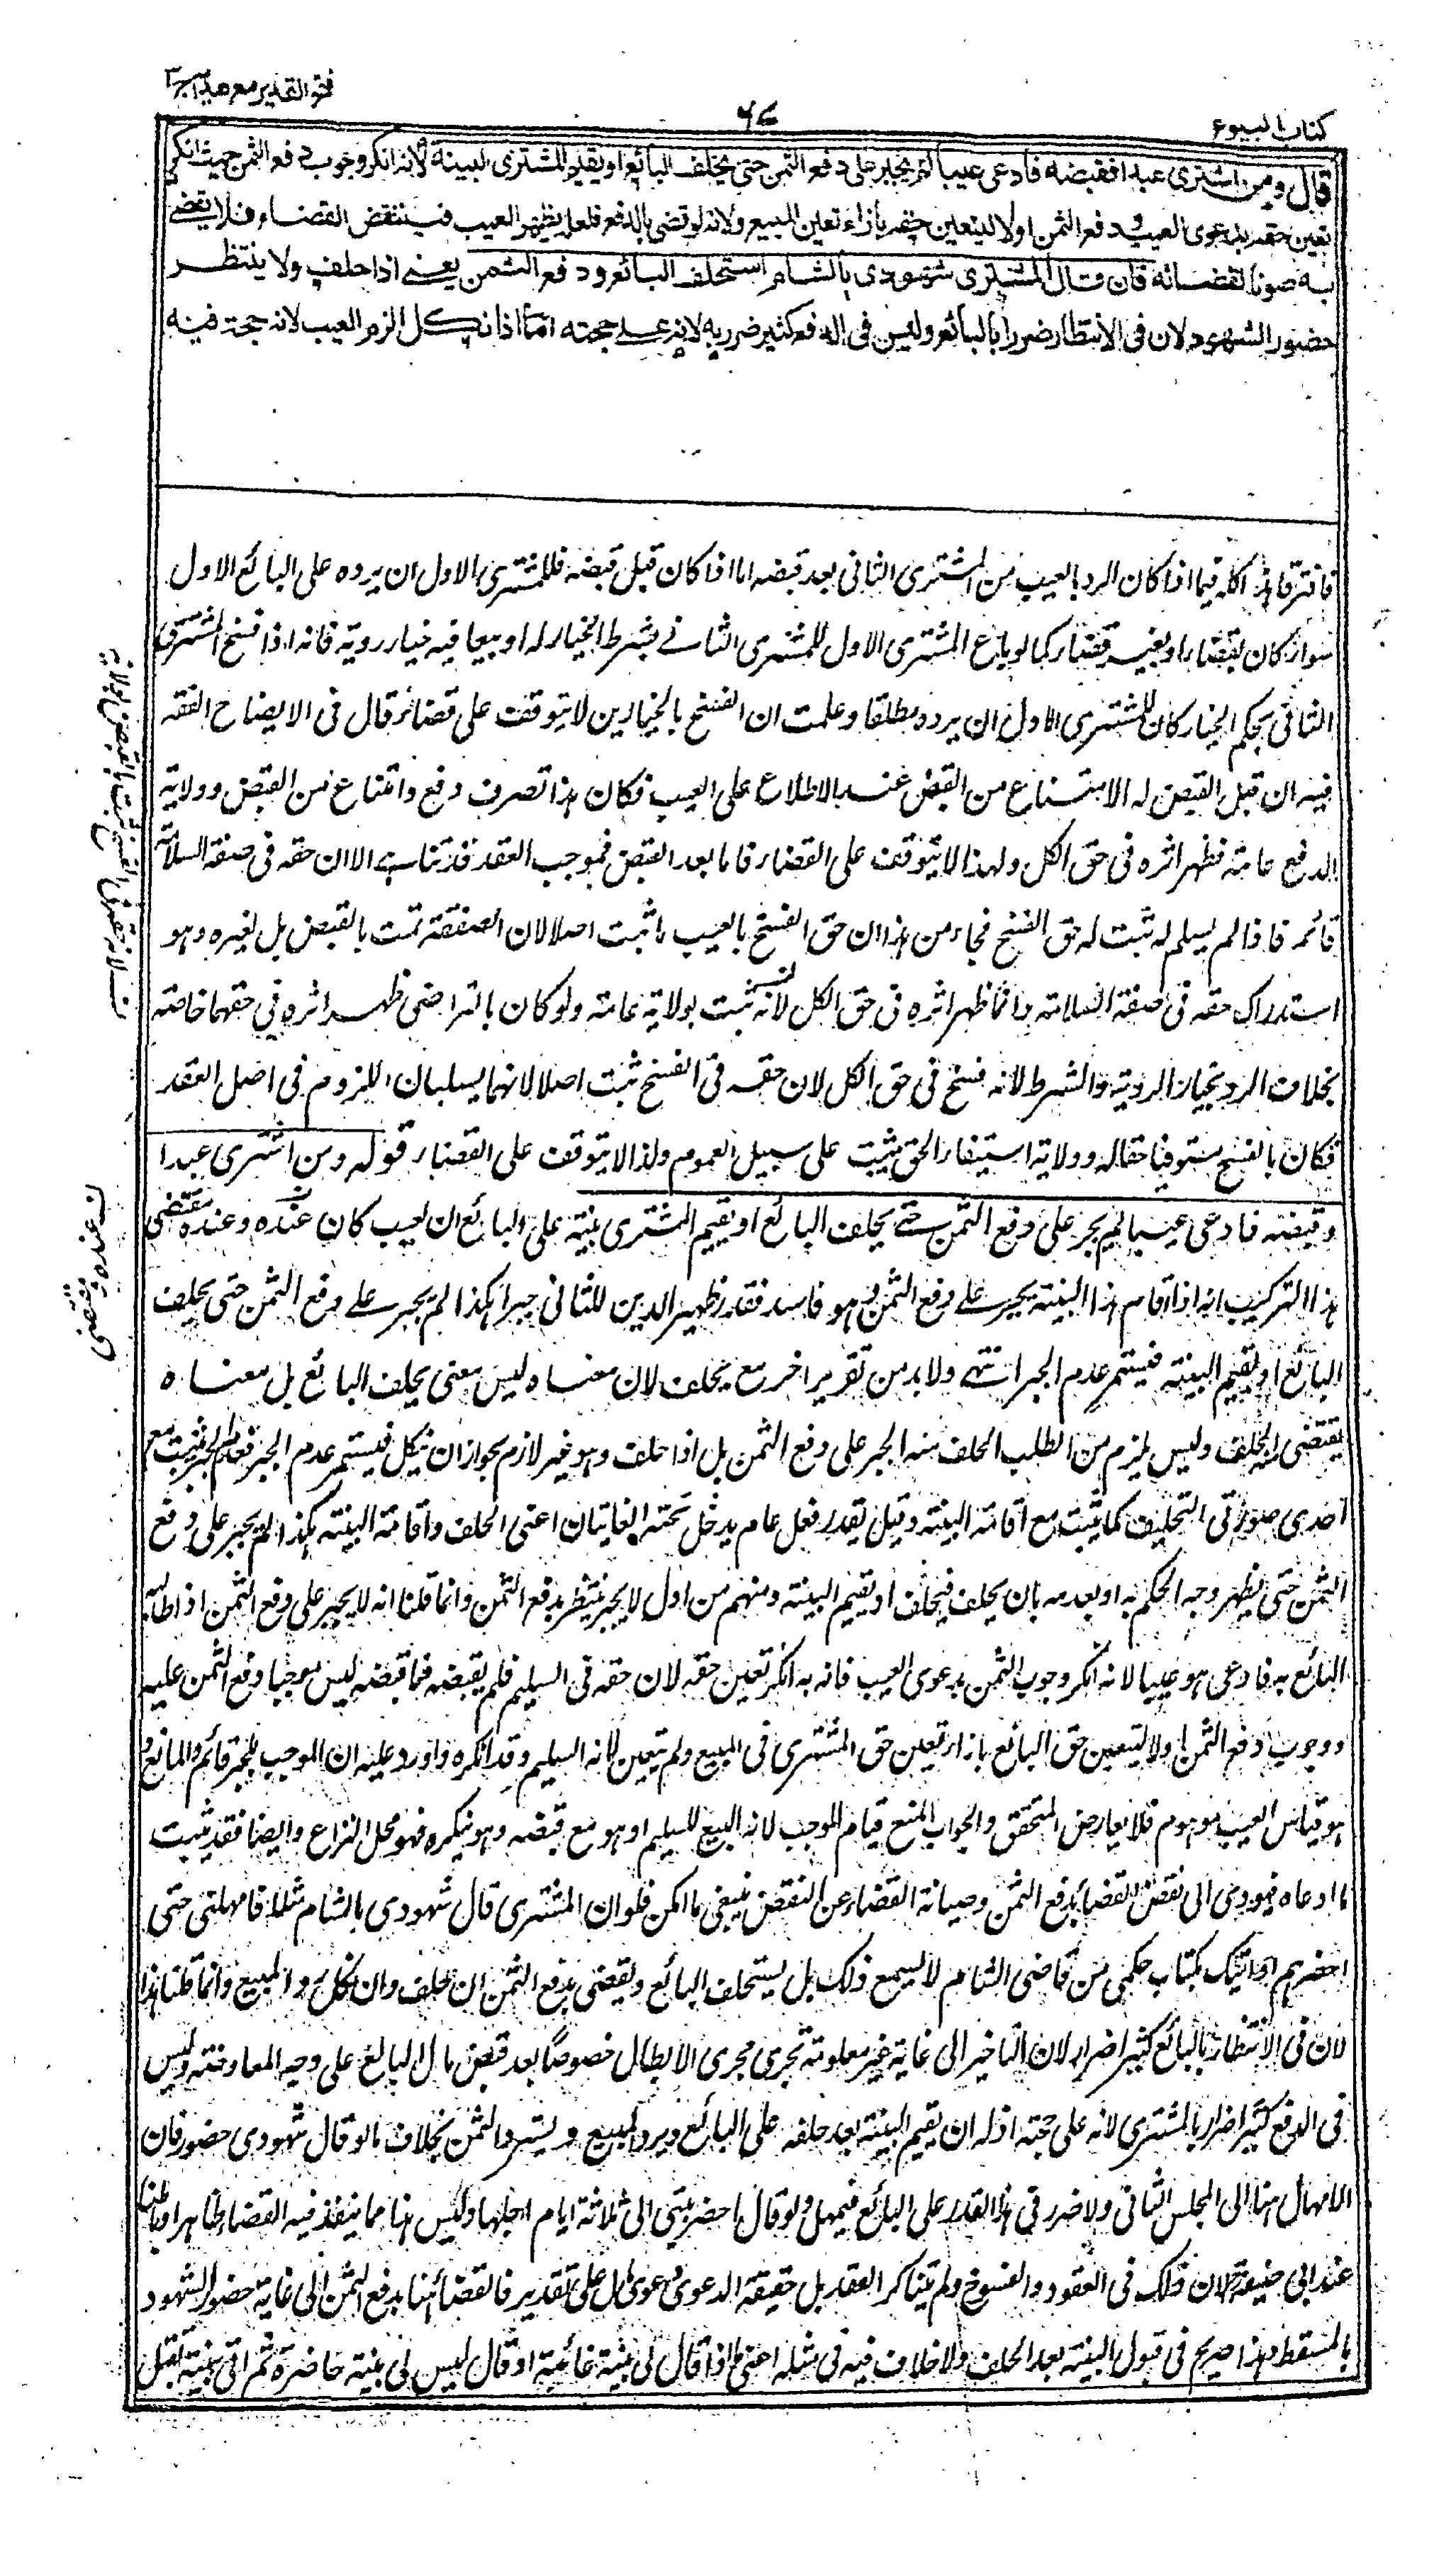 فتح القدیر مع هدایه ج ٣
٦٧
کتاب البیوع
قال ومن اشتری عبدا فقبضه فادعی عیبا لم یجبر علی دفع الثمن حتی یحلف البائع او یقیم المشتری البینة لانه انکر وجوب دفع الثمن حیث انکر
تعین حقه بدعوی العیب ودفع الثمن اولا لیتعین حقه بازاء تعین المبیع ولانه لو قضی بالدفع فلعله یظهر العیب فینتقض القضاء فلا یقضی
به صونا لقضائه فان قال المشتری شهودی بالشام استحلف البائع ودفع الثمن یعنی اذا حلف ولا ینتظر
حضور الشهود لان فی الانتظار ضررا بالبائع ولیس فی الدفع کثیر ضرر به لانه علی حجته اما اذا نکل الزم العیب لانه حجة فیه
فافترقا هذا کله فیما اذا کان الرد بالعیب من المشتری الثانی بعد قبضه اما اذا کان قبل قبضه فللمشتری الاول ان یرده علی البائع الاول
سواء کان بقضاء او بغیر قضاء کما لو باع المشتری الاول للمشتری الثانی بشرط الخیار له او بیعا فیه خیار رویة فانه اذا فسخ المشتری
الثانی بحکم الخیار کان للمشتری الاول ان یرده مطلقا وعلمت ان الفسخ بالخیارین لا یتوقف علی قضاء قال فی الایضاح الفقه
فیه ان قبل القبض له الامتناع من القبض عند الاطلاع علی العیب فکان هذا تصرف دفع وامتناع من القبض وولایة
الدفع عامة فظهر اثره فی حق الکل ولهذا لا یتوقف علی القضاء فاما بعد القبض فموجب العقد قد تناهی الا ان حقه فی صفة السلامة
قائم فاذا لم یسلم له ثبت له حق الفسخ فجاء من هذا ان حق الفسخ بالعیب ما ثبت اصلا لان الصفقة تمت بالقبض بل لغیره وهو
استدراک حقه فی صفة السلامة وانما ظهر اثره فی حق الکل لانه فسخ ثبت بولایة عامة ولو کان بالتراضی ظهر اثره فی حقهما خاصة
بخلاف الرد بخیار الرویة والشرط لانه فسخ فی حق الکل لان حقه فی الفسخ ثبت اصلا لانهما یسلبان اللزوم فی اصل العقد
فکان بالفسخ مستوفیا حقا له وولایة استیفاء الحق یثبت علی سبیل العموم ولذا لا یتوقف علی القضاء قوله ومن اشتری عبدا
وقبضه فادعی عیبا لم یجبر علی دفع الثمن حتی یحلف البائع او یقیم المشتری بینة علی البائع ان العیب کان عنده وعنده مقتضی
هذا الترکیب انه اذا اقام هذا البینة یجبر علی دفع الثمن وهو فاسد فقدر ظهیر الدین للثانی خبرا هکذا لم یجبر علی دفع الثمن حتی یحلف
البائع او یقیم البینة فیستمر عدم الجبر انتهی ولا بد من تقریر اخر مع یحلف لان معناه لیس معنی یحلف البائع بل معناه
یقتضی الحلف ولیس یلزم من الطلب الحلف منه الجبر علی دفع الثمن بل اذا حلف وهو غیر لازم بجواز ان ینکل فیستمر عدم الجبر فعدم الجبر یثبت مع
احدی صورتی التحلیف کما یثبت مع اقامة البینة وقیل یقدر فعل عام یدخل تحته الغایتان اعنی الحلف واقامة البینة هکذا لم یجبر علی دفع
الثمن حتی یظهر وجه الحکم به او بعدمه بان یحلف فیحلف او یقیم البینة ومنهم من اول لا یجبر بینتظر بدفع الثمن وانما قلنا انه لا یجبر علی دفع الثمن اذا طالبه
البائع به فادعی هو عیبا لانه انکر وجوب الثمن بدعوی العیب فانه به انکر تعین حقه لان حقه فی السلیم فلم یقبضه فما قبضه لیس موجبا دفع الثمن علیه
ووجوب دفع الثمن اولا لیتعین حق البائع بازاء تعین حق المشتری فی المبیع ولم یتعین لانه السلیم وقد انکره واورد علیه ان الموجب للجبر قائم والمانع و
هو قیاس العیب موهوم فلا یعارض المتحقق والجواب المنع قیام الموجب لانه البیع للسلیم او هو مع قبضه وهو ینکره فهو محل النزاع وایضا فقد یثبت
ما ادعاه فیودی الی نقض القضاء بدفع الثمن وصیانة القضاء عن النقض ینبغی ما امکن فلو ان المشتری قال شهودی بالشام مثلا فامهلنی حتی
احضرهم او آتیک بکتاب حکمی من قاضی الشام لا یسمع ذلک بل یستحلف البائع ویقضی بدفع الثمن ان حلف وان نکل رد المبیع وانما قلنا هذا
لان فی الانتظار بالبائع کثیر اضرار لان التاخیر الی غایة غیر معلومة تجری مجری الابطال خصوصا بعد قبض مال البائع علی وجه المعاوضة ولیس
فی الدفع کثیر اضرار بالمشتری لانه علی حجته اذ له ان یقیم البینة بعد حلفه علی البائع ویرد المبیع ویسترد الثمن بخلاف ما لو قال شهودی حضور فان
الامهال هنا الی المجلس الثانی ولا ضرر فی هذا القدر علی البائع فیمهل ولو قال احضر بینتی الی ثلاثة ایام اجلها ولیس هنا مما ینفذ فیه القضاء ظاهرا وباطنا
عند ابی حنیفة لان ذلک فی العقود والفسوخ ولم یتناکر العقد بل حقیقة الدعوی دعوی مال علی تقدیر فالقضاء هنا بدفع الثمن الی غایة حضور الشهود
بالمسقط وهذا صریح فی قبول البینة بعد الحلف ولا خلاف فیه فی مثله اعنی ما اذا قال لی بینة غائبة او قال لیس لی بینة حاضرة ثم اتی ببینة تقبل